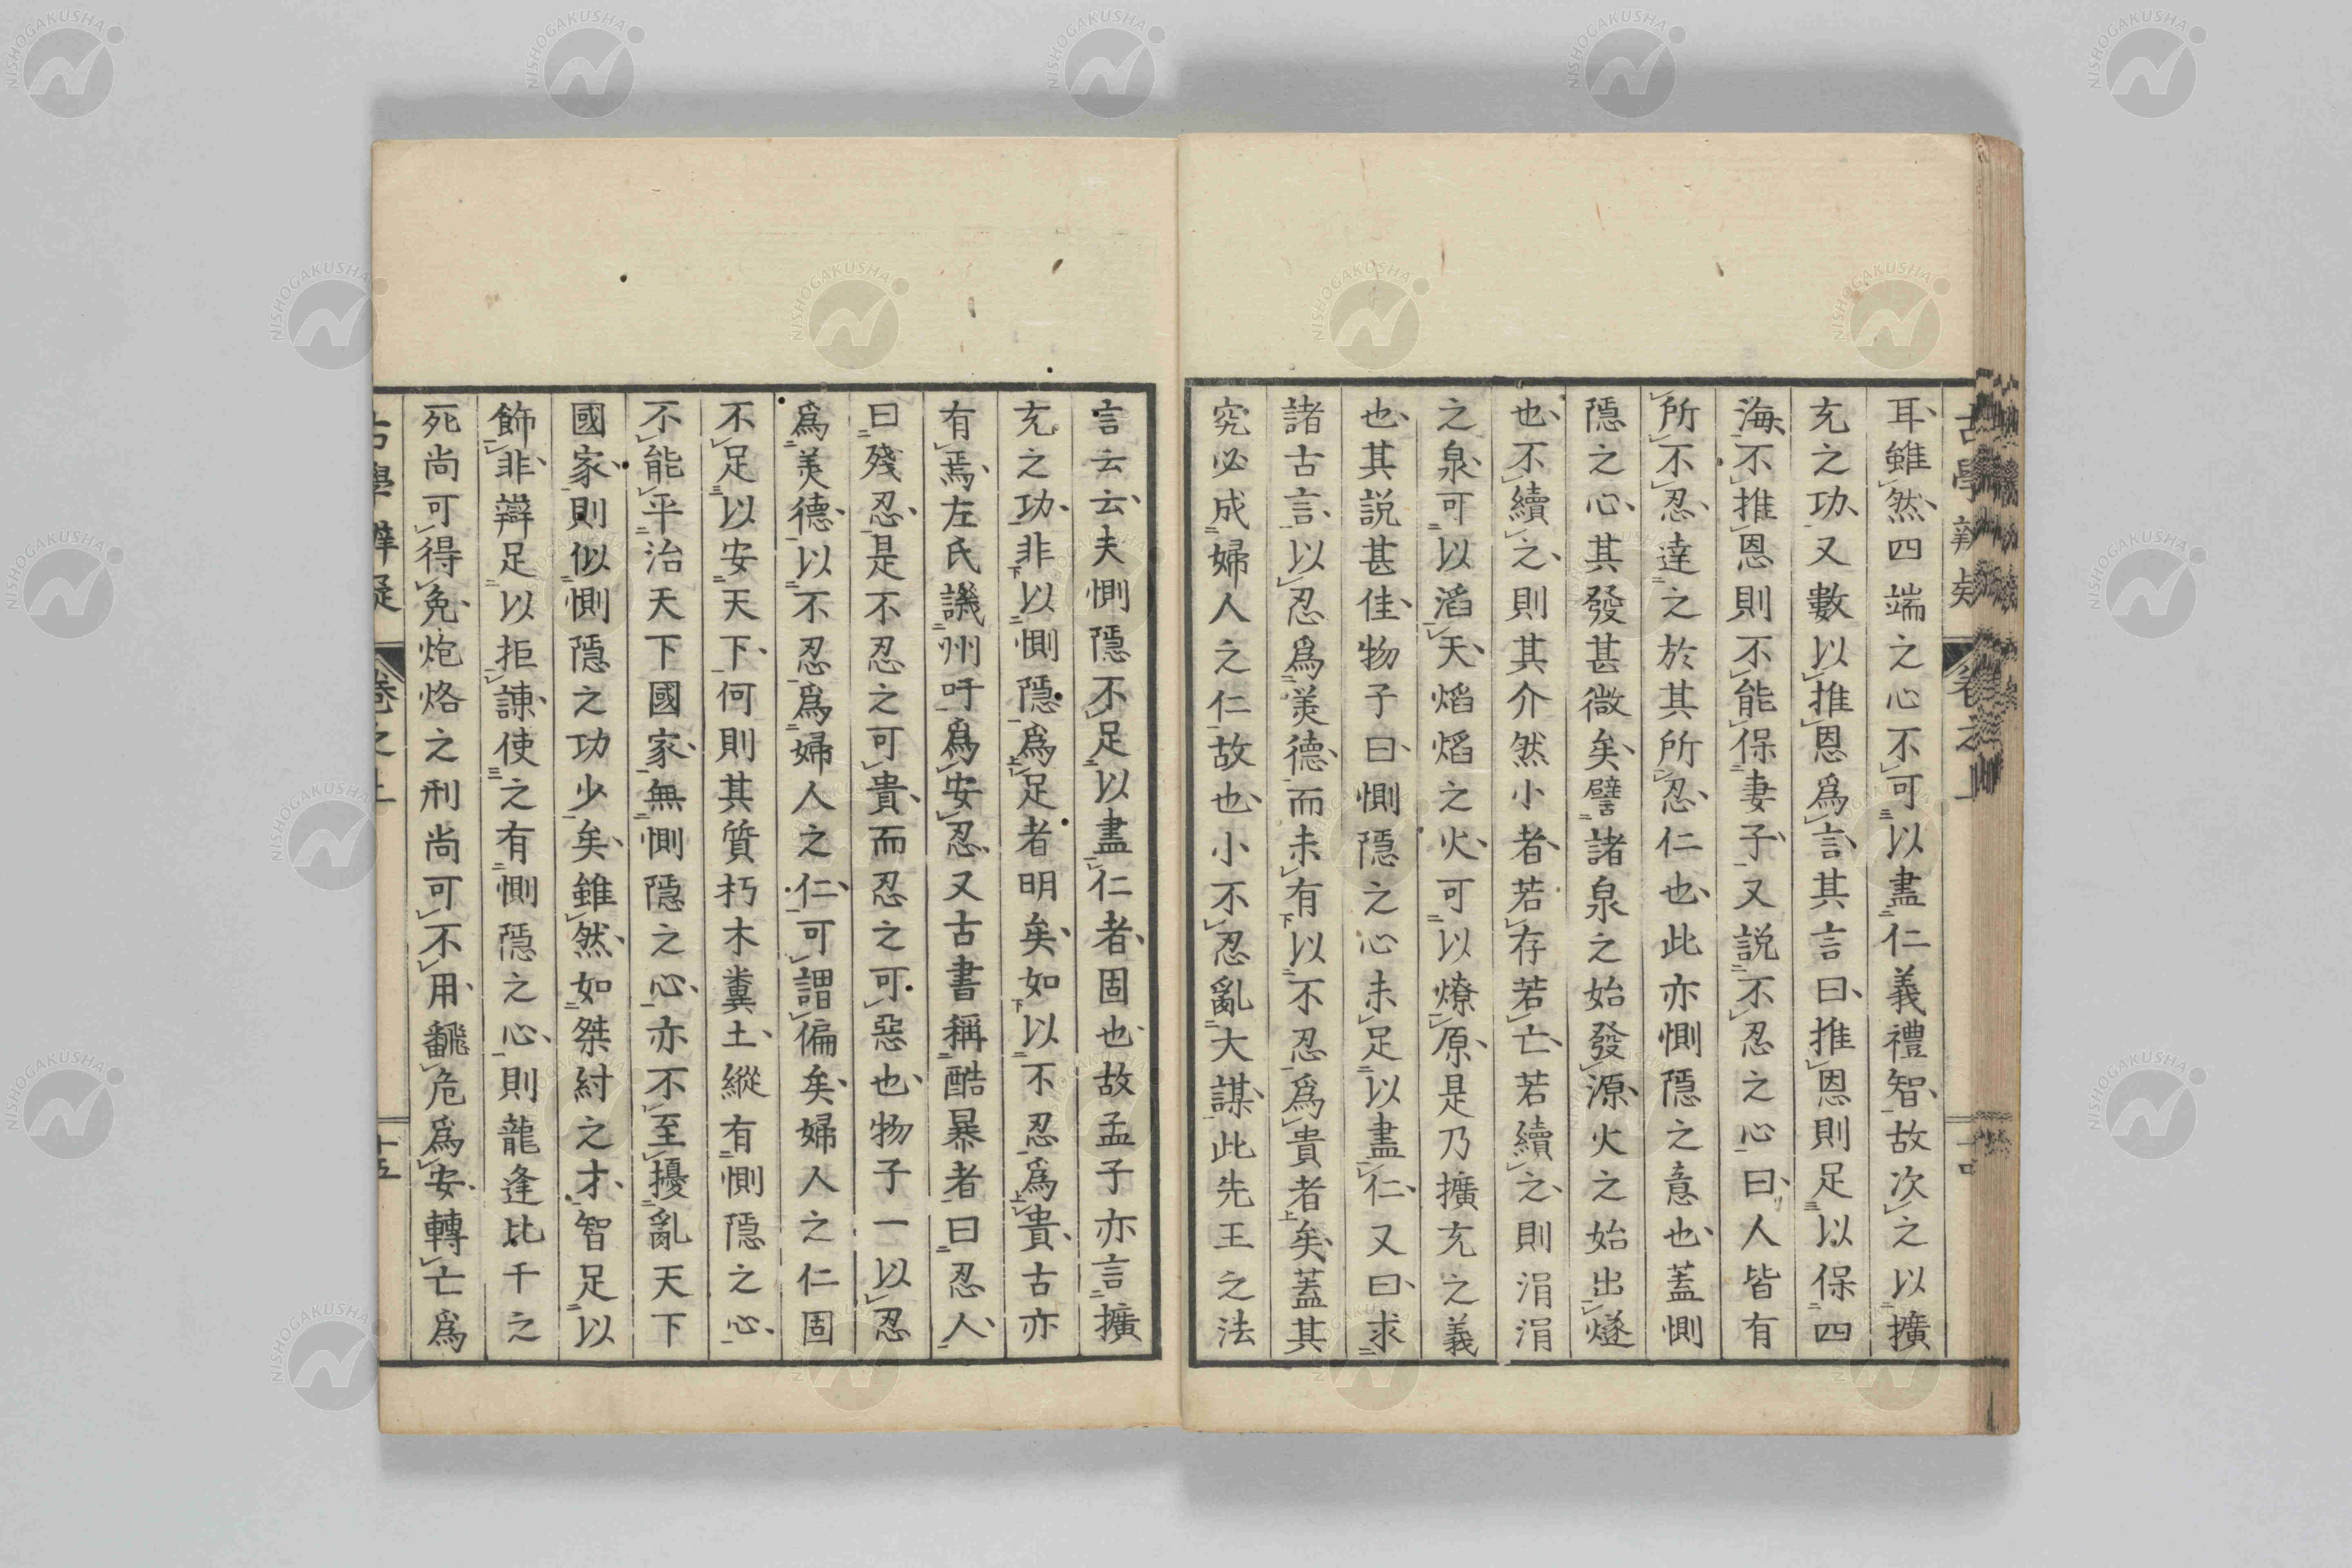 耳雖然四端之心不可以盡仁義禮智故次之以擴
充之功又數以推恩爲言其言曰推恩則足以保四
海不推恩則不能保妻子又説不忍之心曰人皆有
所不忍達之於其所忍仁也此亦惻隱之意也蓋惻
隱之心其發甚微矣譬諸泉之始發源火之始出燧
也不續之則其介然小者若存若亡若續之則涓涓
之泉可以滔天熖熖之火可以燎原是乃擴充之義
也其説甚佳物子曰惻隱之心未足以盡仁又曰求
諸古言以忍爲美德而未有以不忍爲貴者矣蓋其
究必成婦人之仁故也小不忍亂大謀此先王之法
言云云夫惻隱不足以盡仁者固也故孟子亦言擴
充之功非以惻隱爲足者明矣如以不忍爲貴古亦
有焉左氏譏州吁爲安忍又古書稱酷暴者曰忍人
曰殘忍是不忍之可貴而忍之可惡也物子一以忍
爲美德以不忍爲婦人之仁可謂偏矣婦人之仁固
不足以安天下何則其質朽木糞土縱有惻隱之心
不能平治天下國家無惻隱之心亦不至擾亂天下
國家則似惻隱之功少矣雖然如桀紂之才智足以
飾非辯足以拒諫使之有惻隱之心則龍逢比干之
死尚可得免炮烙之刑尚可不用飜危爲安轉亡爲
古學辨疑 卷之上 十五